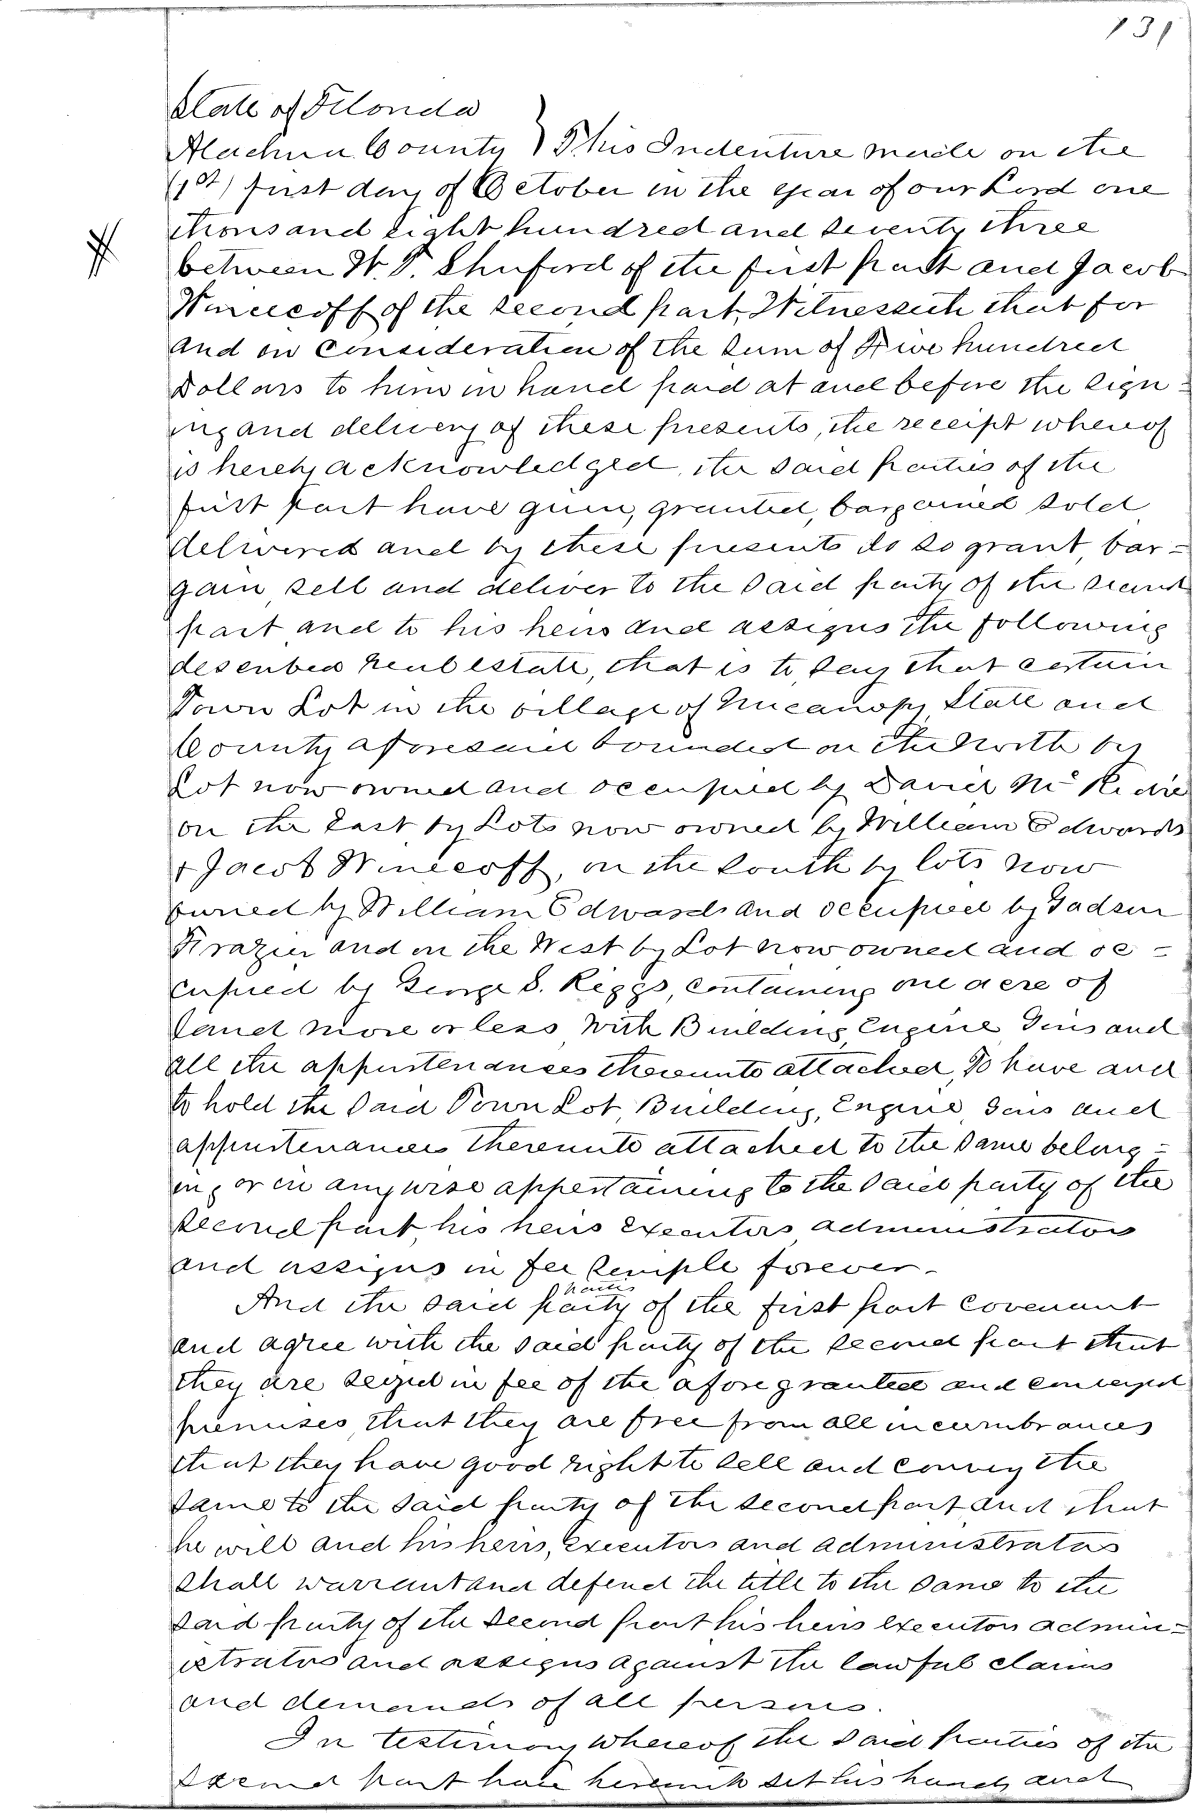 131
State of Florida
Alachua County } This Indenture made on the
(1st) first day of October in the year of our Lord one
thousand eight hundred and seventy three
between W. T. Shuford of the first part and Jacob
Winecoff of the second part, Witnesseth that for
and in consideration of the sum of Five hundred
Dollars to him in hand paid at and before the sign=
ing and delivery of these presents, the receipt whereof
is hereby acknowledged, the said parties of the
first part have given, granted, bargained sold
delivered and by these presents do so grant, bar=
gain, sell and deliver to the said party of the second
part and to his heirs and assigns the following
described real estate, that is to say that certain
Town Lot in the village of Micanopy, State and
County aforesaid bounded on the North by
Lot now owned and occupied by David Mc
on the East by Lots now owned by William Edwards
+ Jacob Winecoff, on the South by lots now
owned by William Edwards and occupied by Gadsen
Frazier and on the West by Lot now owned and oc=
cupied by George S. Riggs, containing one acre of
land more or less With Building, Engine, Gins and
all the appurtenances thereunto attached, To have and
to hold the said Town Lot, Building, Engine, Gins and
appurtenances thereunto attached to the same belong=
ing or in anywise appertaining to the said party of the
second part, his heirs executors administrators
and assigns in fee simple forever.
parties
And the said party of the first part covenant
and agree with the said party of the second part that
they are seized in fee of the aforegranted and conveyed
premises, that they are free from all incumbrances
that they have good right to sell and convey the
same to the said party of the second part and that
he will and his heirs, executors and administrators
shall warrant and defend the title to the same to the
said party of the second part his heirs executors admin=
istrators and assigns against the lawful claims
and demands of all persons.
In testimony whereof the said parties of the
second part have hereunto set his hands and